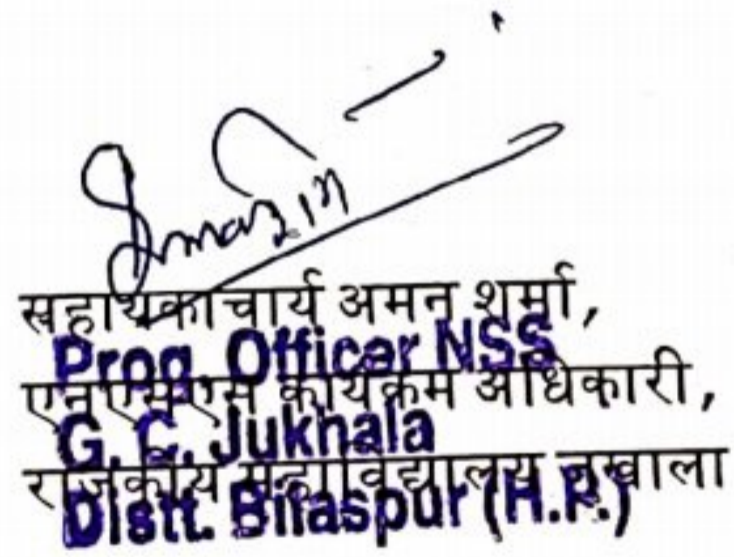 सहायकाचार्य अमन शर्मा,
Prog. Officer NSS
एनएसएस कार्यक्रम अधिकारी,
G. C. Jukhala
राजकीय महाविद्यालय जुखाला
Distt. Bilaspur (H.P.)